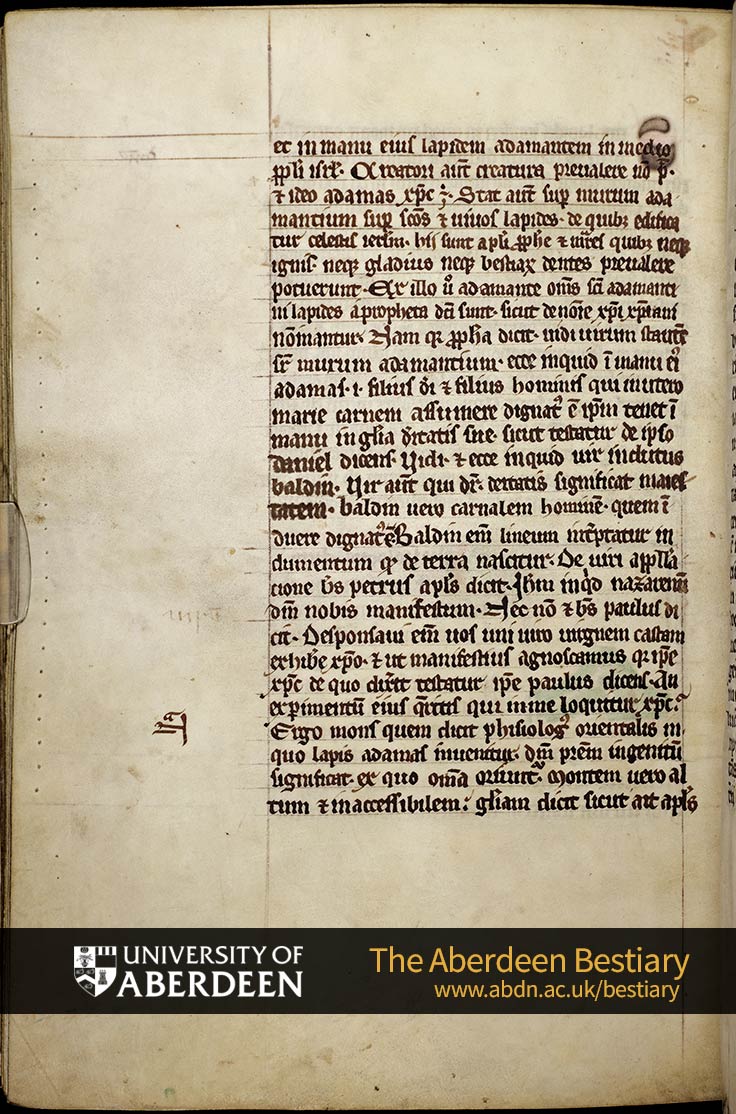 et in manu eius lapidem adamantem in medio
ppli isrl. Creatori aut creatura prevalere nō p̄.
⁊ ideo adamas xp̄c ÷. Stat aut sup murum ada
mantium sup scōs ⁊ vivos lapides. de quibꝫ edifica
tur celestis ierlm̄. hii sunt apli ꝓphe ⁊ mr̄es quibꝫ neqꝫ
ignis neqꝫ gladius neqꝫ bestiaꝝ dentes prevalere
potuerunt. Ex illo ū adamante oms sc̄i adamanti
ni lapides a propheta dc̄i sunt. sicut de noīe xp̄i xp̄iani
nōīmantur. Nam qꝫ ꝓpha dicit. vidi virum stantē
sr̄ murum adamantium. ecce inquid ī manu ei᷒
adamas. i. filius di ⁊ filius hominis qui in utero
marie carnem assumere dignat᷒ ē ip̄m tenet ī
manu in glīa dītatis sue. sicut testatur de ipso
daniel dicens. Vidi. ⁊ ecce inquid vir indutus
baldin. Vir aut qui dr̄. deitatis significat maies
tatem. baldin vero carnalem homine. quem ī
duere dignat᷒ ē. Baldin em̄ lineum int̄ptatur in
dumentum qꝫ de terra nascitur. De viri appll̄a
cione b̄s petrus apl̄s dicit. Ihm̄ inq̄d nazarenū
dm̄ nobis manifestum. Nec nō ⁊ b̄s paulus di
cit. Desponsavi em̄ vos uni viro virginem castam
exhibe xp̄o. ⁊ ut manifestius agnoscamus qꝫ ip̄e
xp̄c de quo dix̄it testatur ip̄e paulus dicens. An
experimentū eius q̄ritis qui in me loquitur xp̄c.
Ergo mons quem dicit phisiolog᷒ orientalis in
quo lapis adamas invenitur. dm̄ prēm ingenitū
significat. ex quo om̄a oriunt᷒. Montem vero al
tum ⁊ inaccessibilem. glīam dicit sicut ait apl̄s
UNIVERSITY OF
ABERDEEN
The Aberdeen Bestiary
www.abdn.ac.uk/bestiary